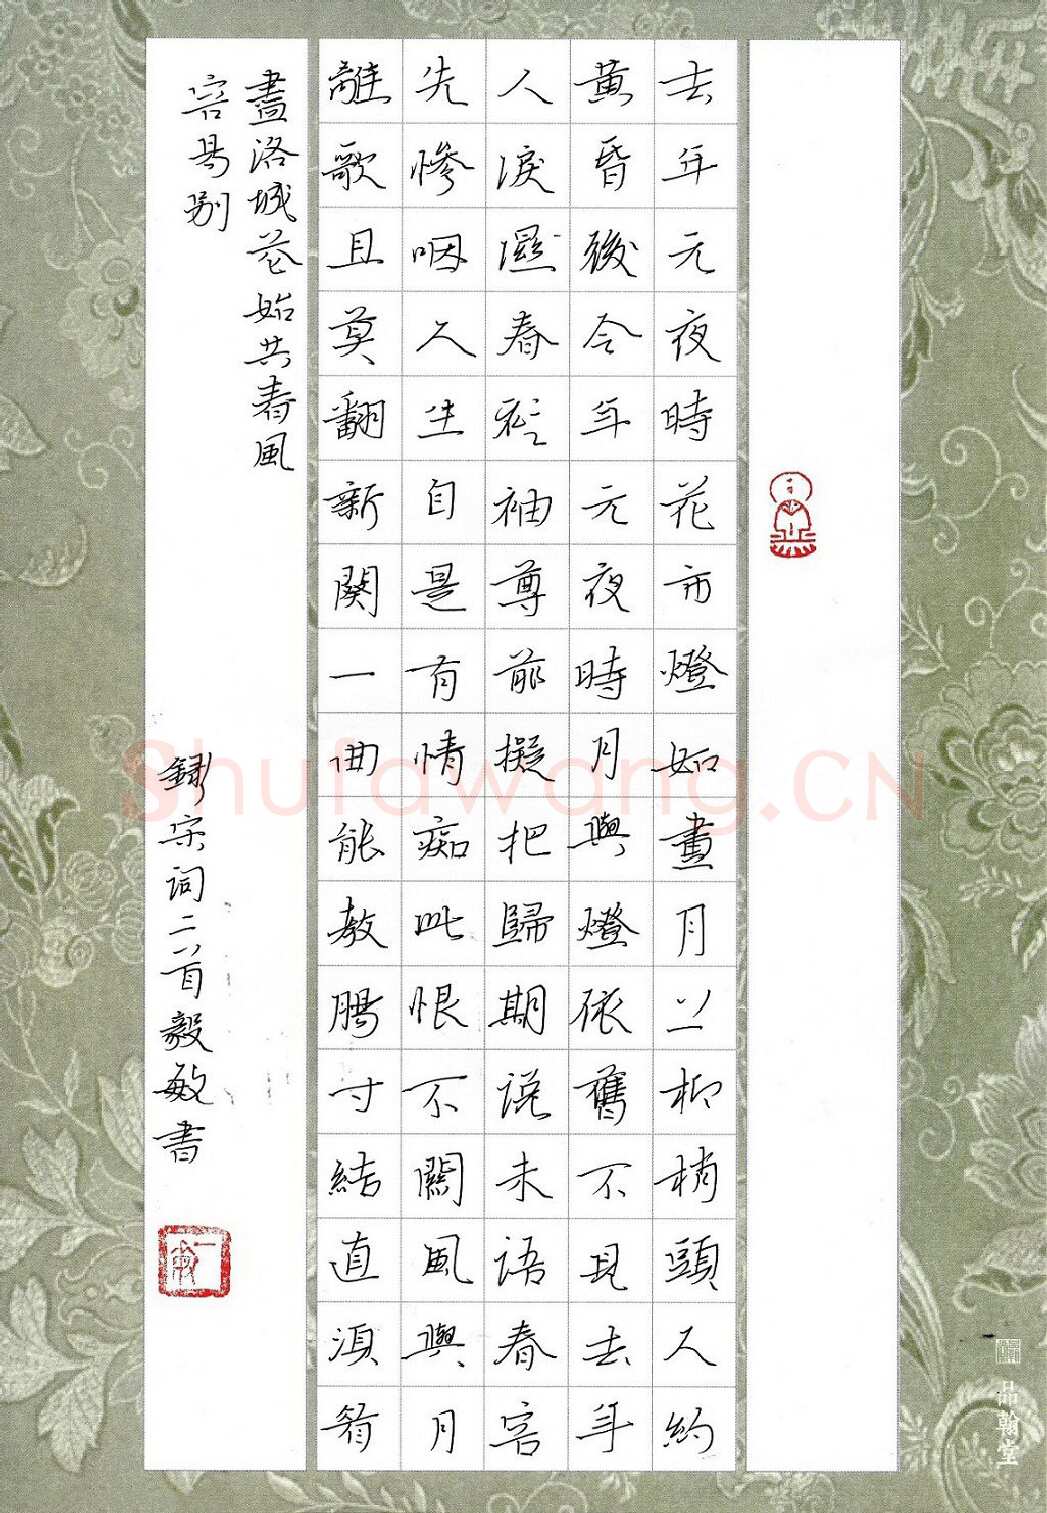 去年元夜時花市燈如晝月上柳梢頭人約
黃昏後今年元夜時月與燈依舊不見去年
人淚濕春衫袖尊前擬把歸期說未語春容
先慘咽人生自是有情痴此恨不關風與月
離歌且莫翻新闋一曲能教腸寸結直須看
盡洛城花始共春風
容易別
錄宋詞二首毅敏書
品翰堂
Shufawang.CN